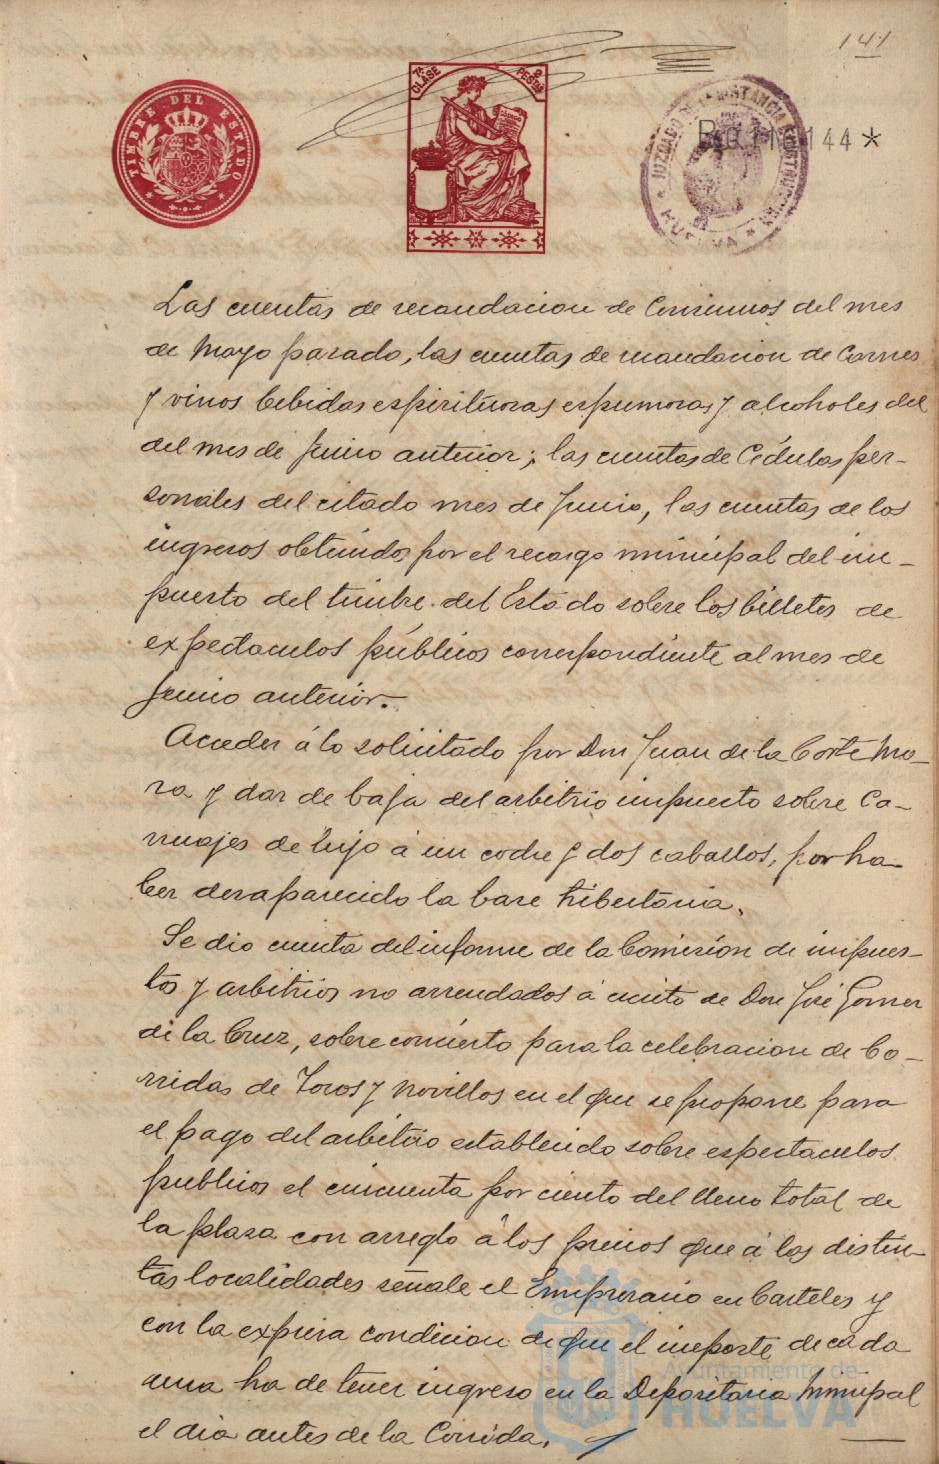 141
TIMBRE DEL ESTADO
7ª CLASE
2 PESTAS
JUZGADO DE 1ª INSTANCIA E INSTRUCCIÓN
HUELVA
144*
Las cuentas de recaudacion de Consumos del mes
de Mayo pasado, las cuentas de recaudacion de Carnes
y vinos bebidas espirituosas espumosas y alcoholes del
del mes de Junio anterior; las cuentas de Cédulas per-
sonales del citado mes de Junio, las cuentas de los
ingresos obtenidos por el recargo municipal del im-
puesto del timbre del Estado sobre los billetes de
expectaculos públicos correspondiente al mes de
Junio anterior.
Acceder á lo solicitado por Don Juan de la Corte Mo-
ra y dar de baja del arbitrio impuesto sobre Ca-
rruajes de lujo á un coche y dos caballos, por ha
ber desaparecido la base tributaria.
Se dio cuenta del informe de la Comisión de impues-
tos y arbitrios no arrendados á escrito de Don José Gomez
de la Cruz, sobre concierto para la celebracion de Co-
rridas de Toros y Novillos en el que se propone para
el pago del arbitrio establecido sobre espectaculos
publicos el cincuenta por ciento del lleno total de
la plaza con arreglo á los precios que á las distin-
tas localidades señale el Empresario en Carteles y
con la expresa condicion de que el importe de cada
una ha de tener ingreso en la Depositaria Municipal
el dia antes de la Corrida.
Ayuntamiento de
HUELVA